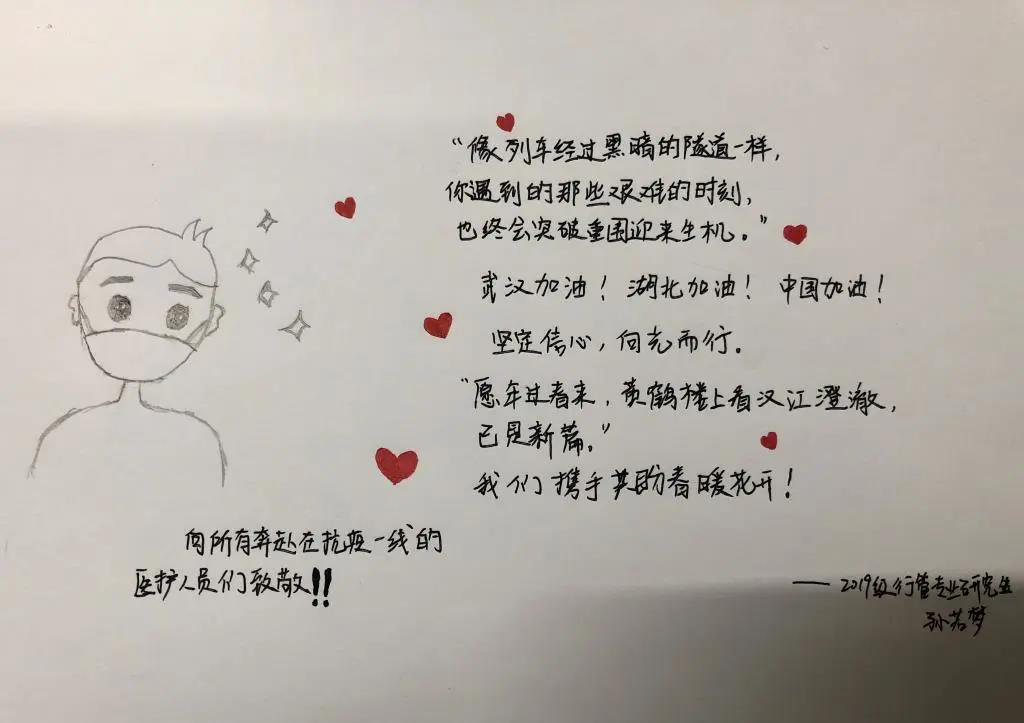 “像列车经过黑暗的隧道一样，
你遇到的那些艰难的时刻，
也终会突破重围迎来生机。”
武汉加油！ 湖北加油！ 中国加油！
坚定信心，向光而行。
“愿年过春来，黄鹤楼上看汉江澄澈，
已是新篇。”
我们携手共盼春暖花开！
向所有奔赴在抗疫一线的
医护人员们致敬!!
——2019级行管专业研究生
孙若梦